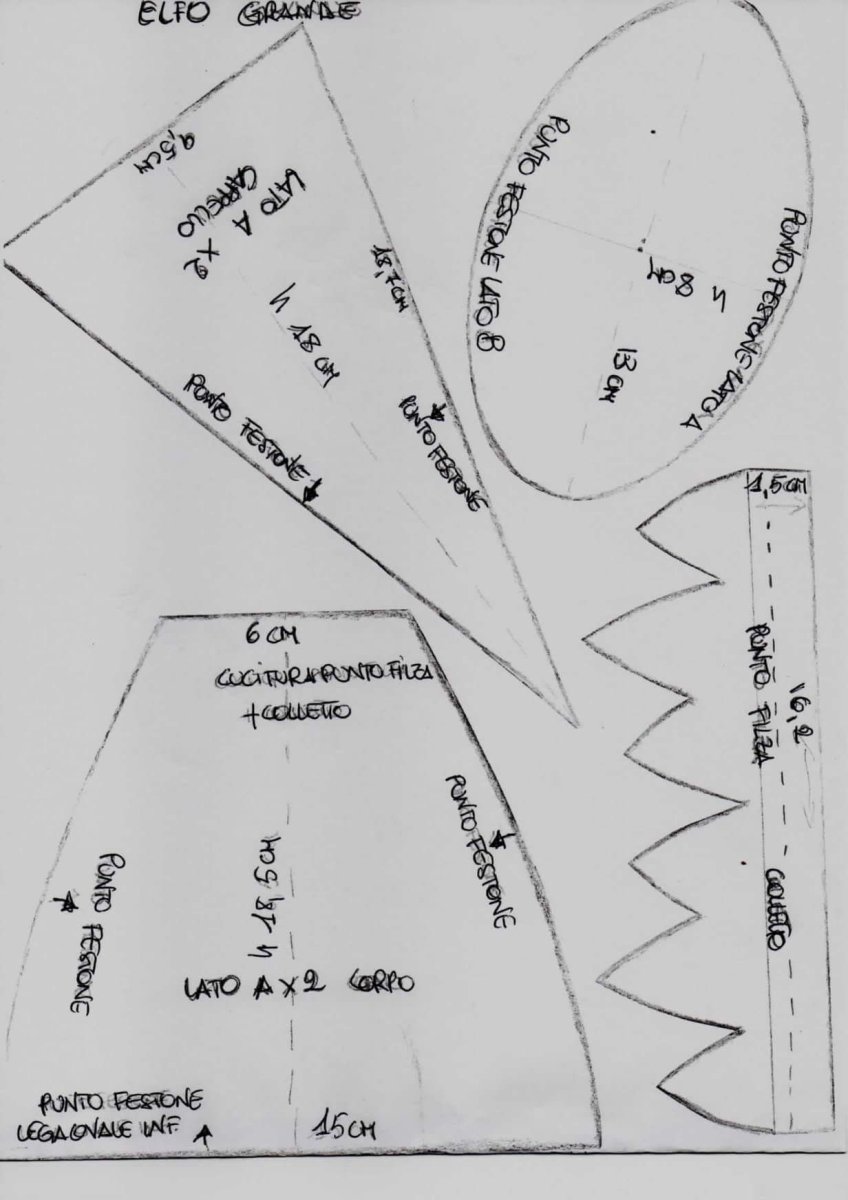 ELFO GRANDE
9,5CM
LATO A
CAPPELLO x 2
h 18 CM
18,7CM
PUNTO FESTONE
PUNTO FESTONE
PUNTO FESTONE LATO B
PUNTO FESTONE LATO A
13 CM
1,5CM
PUNTO FILZA
16,2
COLLETTO
6 CM
CUCITURA PUNTO FILZA
+ COLLETTO
PUNTO FESTONE
PUNTO FESTONE
h 18,5CM
LATO A X 2 CORPO
PUNTO FESTONE
INF.
15CM